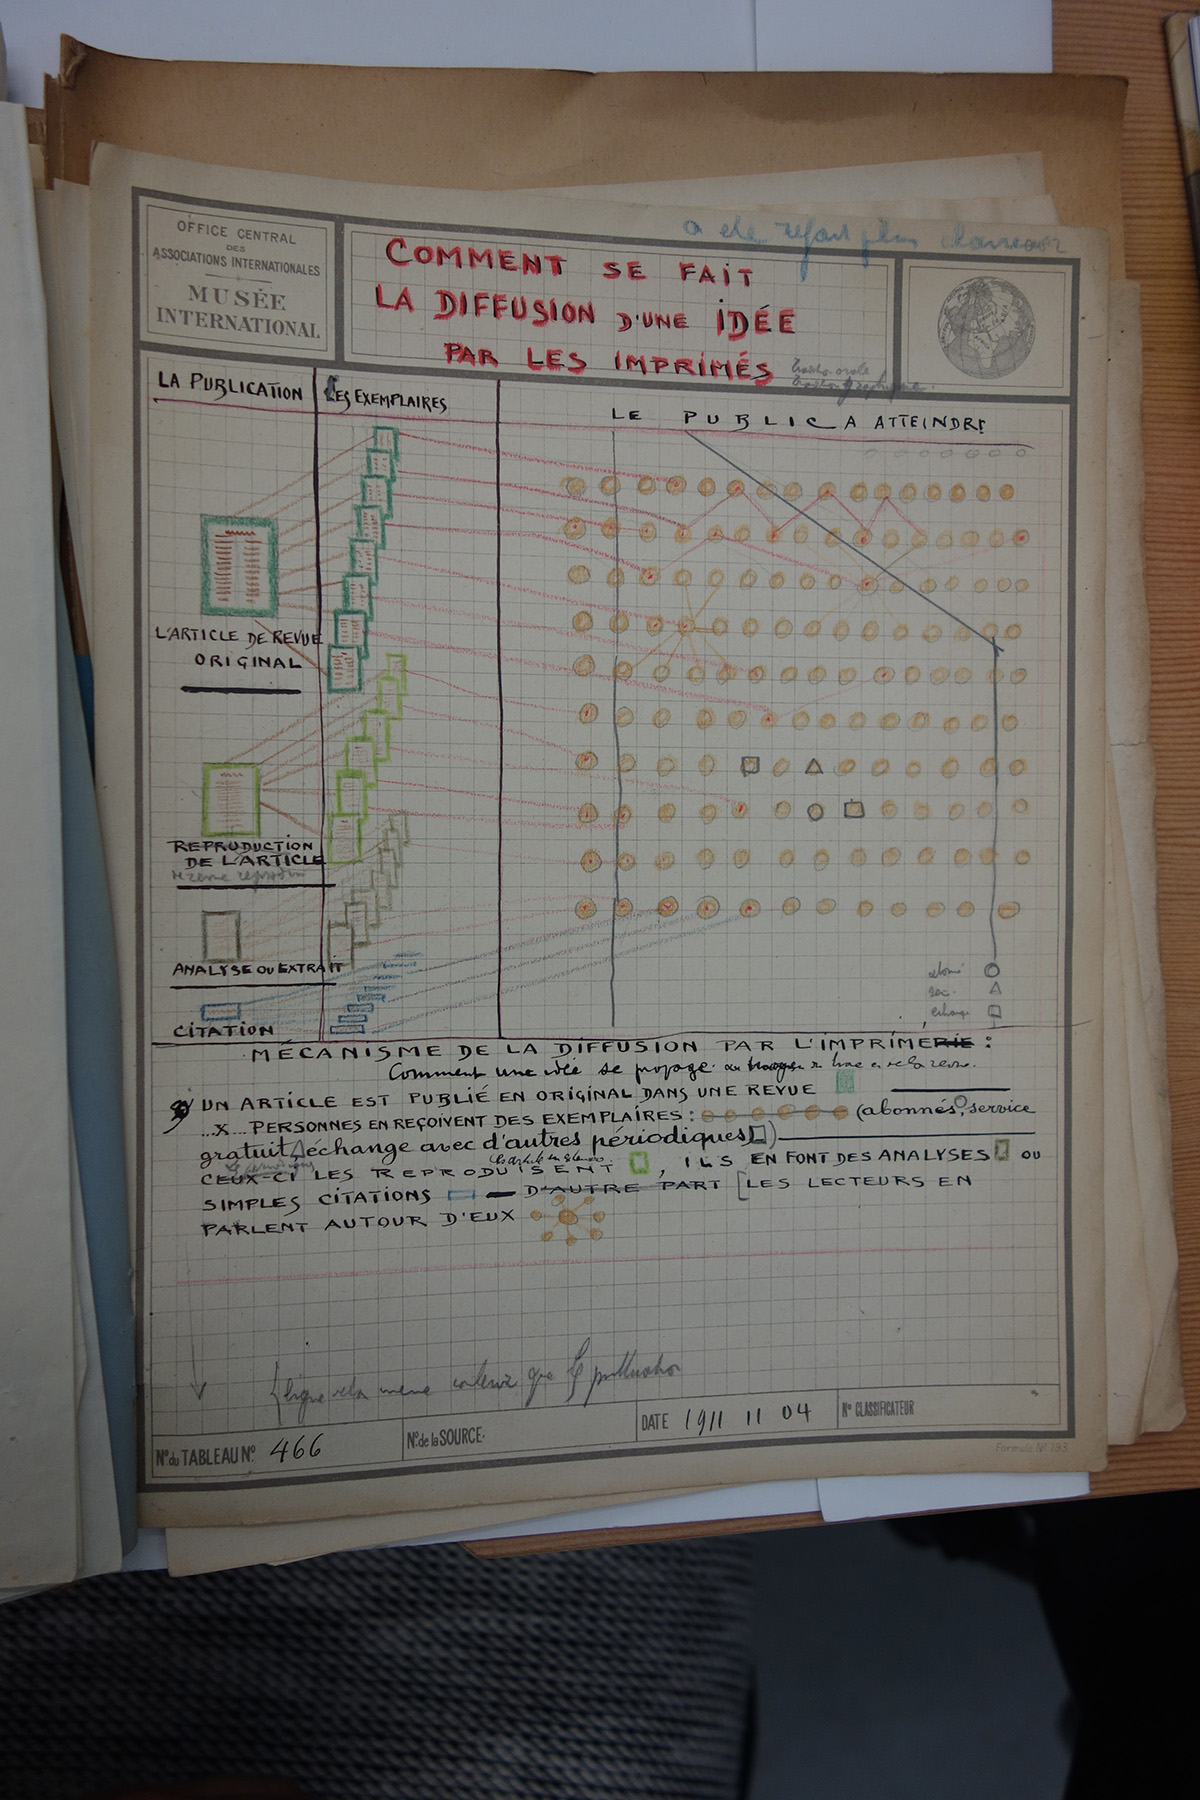 a été refait plus
OFFICE CENTRAL
DES
ASSOCIATIONS INTERNATIONALES
MUSÉE
INTERNATIONAL
COMMENT SE FAIT
LA DIFFUSION D'UNE IDÉE
PAR LES IMPRIMÉS
LA PUBLICATION
LES EXEMPLAIRES
LE PUBLIC A ATTEINDRE
L'ARTICLE DE REVUE
ORIGINAL
REPRODUCTION
DE L'ARTICLE
ANALYSE OU EXTRAIT
CITATION
échange
MÉCANISME DE LA DIFFUSION PAR L'IMPRIMÉRIE :
Comment une idée se propage
UN ARTICLE EST PUBLIÉ EN ORIGINAL DANS UNE REVUE
...X... PERSONNES EN REÇOIVENT DES EXEMPLAIRES : (abonnés, service
gratuit, échange avec d'autres périodiques)
CEUX-CI LES REPRODUISENT , ILS EN FONT DES ANALYSES OU
SIMPLES CITATIONS — D'AUTRE PART [LES LECTEURS EN
PARLENT AUTOUR D'EUX
ligne de la même couleur que
N° du TABLEAU N° 466
N° de la SOURCE.
DATE 1911 11 04
N° CLASSIFICATEUR
Formule N° 193